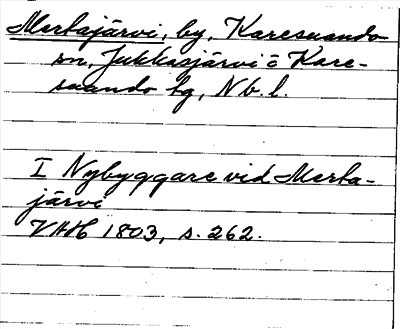 Mertajärvi, by, Karesuando
sn, Jukkasjärvi o Kare-
suando tg, Nb. l.
I Nybyggare vid Merta-
järvi
VHH 1803, s. 262.